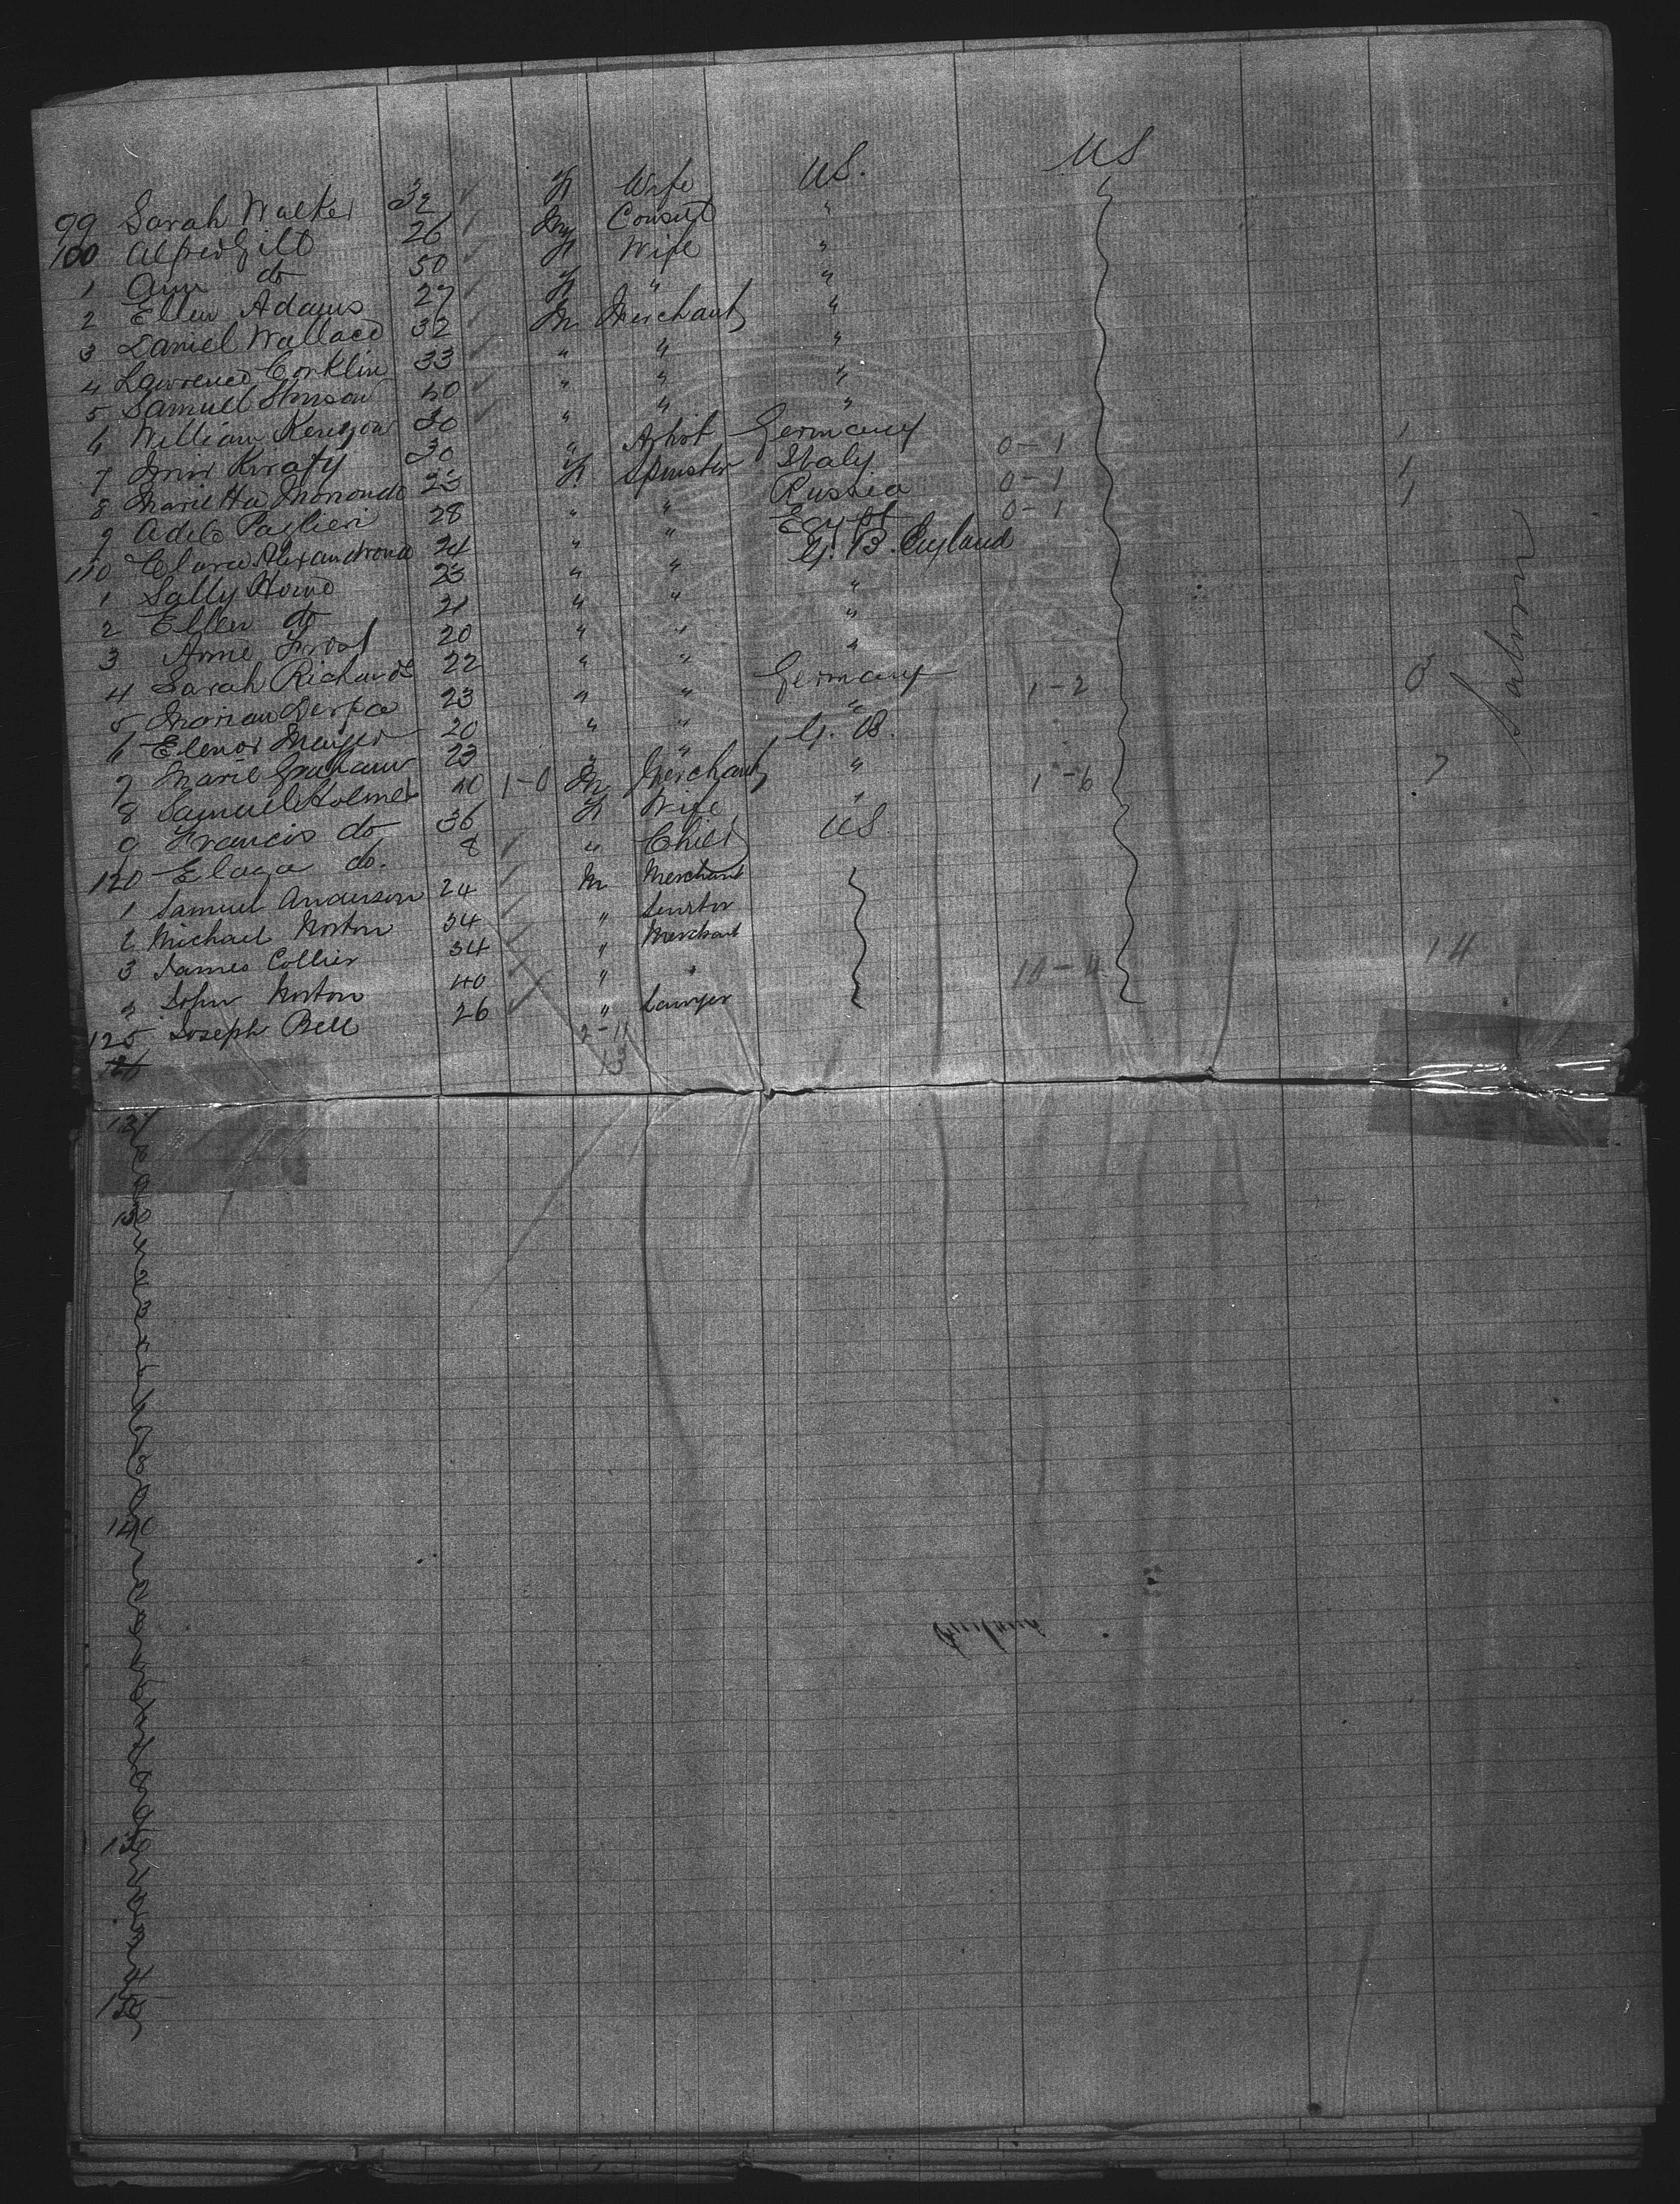 US
99 Sarah Walker 32 F Wife US.
100 Alfred Gilt 26 M Consul "
1 Ann do 50 F Wife "
2 Ellen Adams 27 F " "
3 Daniel Wallace 32 M Merchant "
4 Lawrence Conklin 33 " " "
5 Samuel Stinson 40 " " "
6 William Kenyon 30 " " "
7 Kiralfy 30 " Artist Germany 0-1 1
8 Marietta 23 F Spinster Italy 0-1 1
9 Adele Paglieri 28 " " Russia 0-1 1
110 Clara Alexandrona 24 " " Egypt
1 Sally Home 23 " " G. B. England
2 Ellen do 21 " " "
3 Anne Frost 20 " " "
4 Sarah Richards 22 " " "
5 Marian 23 " " Germany 1-2 3
6 Elenor Meyer 20 " " "
7 Marie Graham 23 " " G. B.
8 Samuel Holmes 40 1-0 M Merchant " 1-6 7
9 Francis do 36 F Wife "
120 do. 8 " Child US
1 Samuel Anderson 24 M Merchant
2 Michael Norton 34 "
3 James Collier 34 " Merchant
John Norton 40 " " 10-4 14
125 Joseph Bell 26 " Lawyer
2-11
13
Saloon
130
140